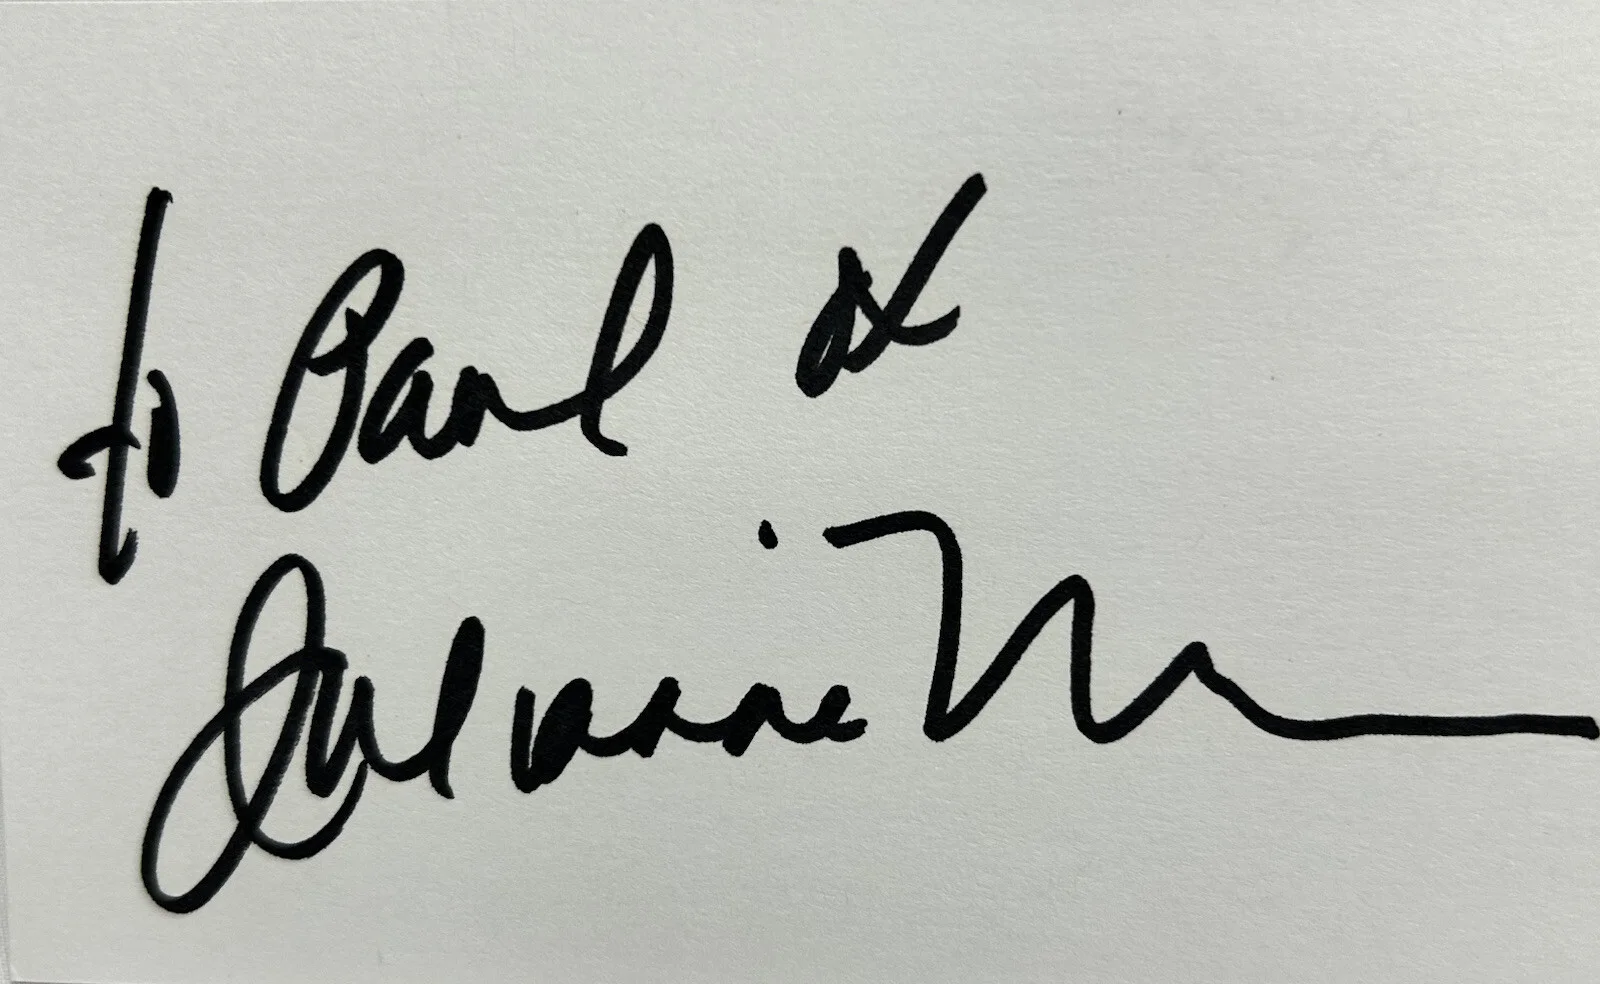 to Paul x
Julianne M